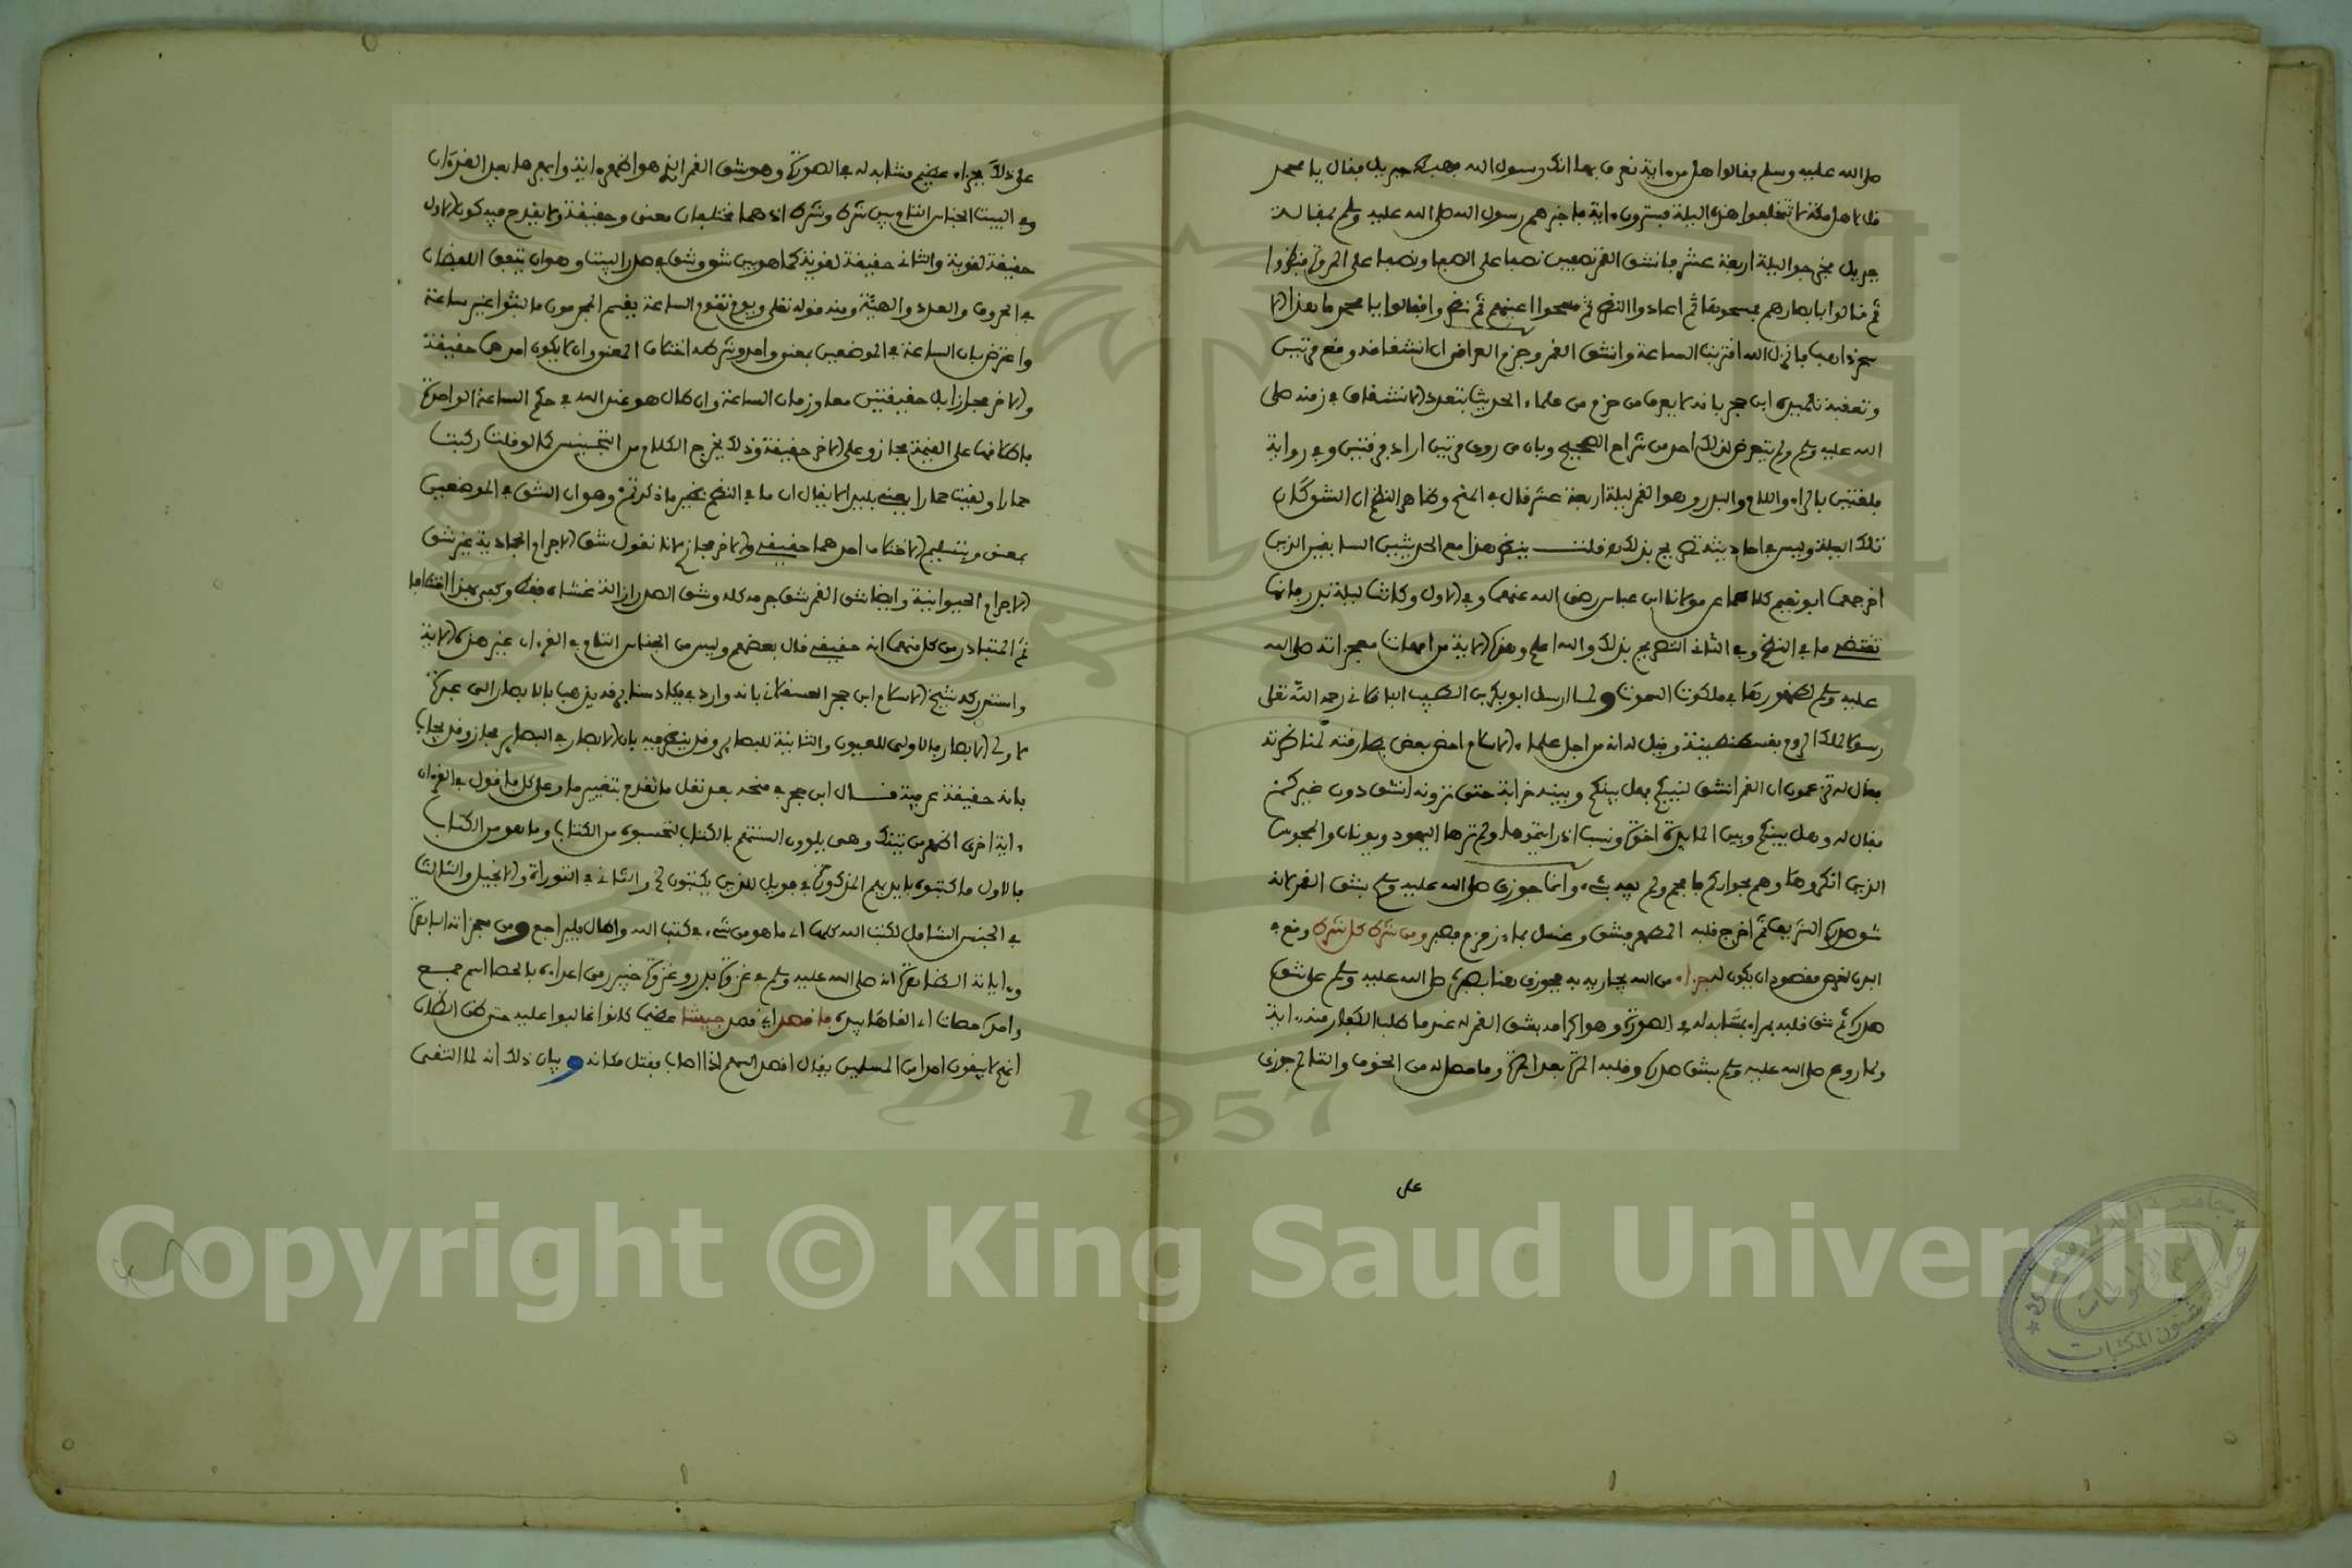 صلى الله عليه وسلم فقالوا هل من ءاية نعرف بها انك رسول الله فهبط جبريل فقال يا محمد
قل لاهل مكة ان يحتفلوا هذه الليلة فسيرون ءاية فاخبرهم رسول الله صلى الله عليه وسلم بمقالة
جبريل فخرجوا ليلة اربعة عشر فانشق القمر نصفين نصفا على الصفا ونصفا على المروة فنظروا
ثم قالوا بابصارهم فمسحوها ثم اعادوا النظر ثم مسحوا اعينهم ثم نظروا فقالوا يا محمد ما هذا الا
سحر ذاهب فانزل الله اقتربت الساعة وانشق القمر وجزم العراقي ان انشقاقه وقع مرتين
وتعقبه تلميذه ابن حجر بانه لا يعرف من جزم من علماء الحديث بتعدد الانشقاق في زمنه صلى
الله عليه وسلم ولم يتعرض لذلك احد من شراح الصحيح وبان من روى مرتين اراد فرقتين وفي رواية
فلقتين بالراء واللام والبدر وهو القمر ليلة اربعة عشر قال في المنح وظاهر النظم ان الشق كان
تلك الليلة وليس في احاديثه تصريح بذلك قلت ينظر هذا مع الحديثين السابقين الذين
اخرجهما ابو نعيم كلاهما عن مولانا ابن عباس رضي الله عنهما وفي الاول وكانت ليلة بدر فانها
تقتضي ما في النظم وفي الثاني التصريح بذلك والله اعلم وهذه الاية من امهات معجزاته صلى الله
عليه وسلم لظهورها في ملكوت السموت ولما ارسل ابو بكر بن الطيب الباقلاني رحمه الله تعلى
رسولا لملك الروم بقسطنطينة وقيل له انه من اجل علماء الاسلام احضر بعض بطارقته لمناظرته
فقال له تزعمون ان القمر انشق لنبيكم فهل بينكم وبينه قرابة حتى ترونه انشق دون غيركم
فقال له وهل بينكم وبين المايدة اخوة ونسب اذ رايتموها ولم ترها اليهود ويونان والمجوس
الذين انكروها وهم بجواركم فافحم ولم يفه بشيء وانما جوزي صلى الله عليه وسلم بشق القمر لانه
شق صدره الشريف ثم اخرج قلبه المطهر فشق وغسل بماء زمزم فصبر ومن شرط كل شرط وقع في
ابدن لغرض مقصود ان يكون له جزاء من الله يجازيه به فجوزي هنا بصبره صلى الله عليه وسلم على شق
صدره ثم شق قلبه بجزاء يشابه له في الصورة وهو اكرامه بشق القمر له عند ما طلب الكفار منه ءاية
ولما روع صلى الله عليه وسلم بشق صدره وقلبه المرة بعد المرة وما حصل له من الخوف والتالم جوزي
على
على ذلك بجزاء عظيم مشابه له في الصورة وهو شق القمر الذي هو اظهر ءاية وابهرها بعد القرءان
وفي البيت الجناس التام بين شرط وشرط اذ هما مختلفان معنى وحقيقة ولا يقدح فيه كون الاول
حقيقة لغوية والثاني حقيقة لغوية كما هو بين شق وشق في صدر البيت وهو ان يتفق اللفظان
في الحروف والعدد والهيئة ومنه قوله تعلى ويوم تقوم الساعة يقسم المجرمون ما لبثوا غير ساعة
واعترض بان الساعة في الموضعين بمعنى واحد وشرطه اختلاف المعنى وان لا يكون احدهما حقيقة
والاخر مجازا بل حقيقتين معا وزمان الساعة وان طال هو عند الله في حكم الساعة الواحدة
فاطلاقها على القيمة مجاز وعلى الاخر حقيقة وذلك يخرج الكلام من التجنيس كما لو قلت ركبت
حمارا ولقيت حمارا يعني بليدا لا يقال ان ما في النظم نظير ما ذكرتم وهو ان الشق في الموضعين
بمعنى وبتسليم الاختلاف احدهما حقيقي والاخر مجاز لانا نقول شق الاجرام الجمادية غير شق
الاجرام الحيوانية وايضا شق القمر شق جرمه كله وشق الصدر ازالة غشاء فقط وكفى بهذا اختلافا
ثم المتبادر من كل منهما انه حقيقي قال بعضهم وليس من الجناس التام في القرءان غير هذه الاية
واستدرك شيخ الاسلام ابن حجر العسقلاني بانه وارد في يكاد سنا برقه يذهب بالابصار الى عبرة
لاولى الابصار فالاولى للعيون والثانية للبصاير وقد ينظر فيه بان الابصار في البصاير مجاز وقد يجاب
بانه حقيقة عرفية قال ابن حجر في منحه بعد نقل ما تقدم بتغيير ما وعلى كل ما قول في القرءان
ءاية اخرى اظهر من تينك وهي يلوون السنتهم بالكتاب لتحسبوه من الكتاب وما هو من الكتاب
فالاول ما كتبوه بايديهم المذكور في فويل للذين يكتبون الخ والثاني في التوراة والانجيل والثالث
في الجنس الشامل لكتب الله كلها اي ما هو من شيء في كتب الله واطال فليراجع ومن معجزاته الباهرة
وءاياته الظاهرة انه صلى الله عليه وسلم في غزوة بدر وغزوة حنين رمى اعداءه بالحصا اسم جمع
واحده حصاة اي القاها بيده ما قصد اي قصد جيشا عظيما كانوا غالبوا عليه حتى ظن الظان
انهم لا يبقون احدا من المسلمين فقال اقصد السهم اذا اصاب فقتل مكانه وبيان ذلك انه لما التقى